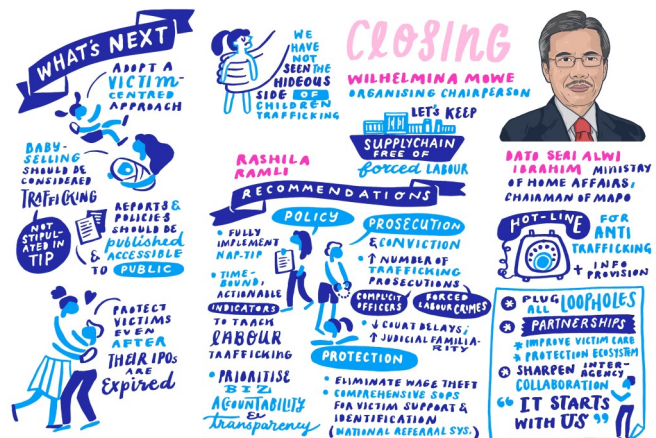 WHAT'S NEXT
ADOPT A
VICTIM-
CENTRED
APPROACH
BABY-
SELLING
SHOULD BE
CONSIDERED
TRAFFICKING
NOT
STIPUL-
ATED IN
TIP
REPORTS &
POLICIES
SHOULD BE
published
ACCESSIBLE
& TO PUBLIC
PROTECT
VICTIMS
EVEN
AFTER
THEIR IPOs
ARE
Expired
WE
HAVE
NOT
SEEN THE
HIDEOUS
SIDE OF
CHILDREN
TRAFFICKING
CLOSING
WILHELMINA MOWE
ORGANISING CHAIRPERSON
LET'S KEEP
SUPPLYCHAIN
FREE OF
forced LABOUR
RASHILA
RAMLI
RECOMMENDATIONS
POLICY
• FULLY
IMPLEMENT
NAP-TIP
• TIME-
BOUND,
ACTIONABLE
INDICATORS
TO TRACK
LABOUR
TRAFFICKING
• PRIORITISE
BIZ
ACCOUNTABILITY
& transparency
PROSECUTION
& CONVICTION
• ↑ NUMBER OF
TRAFFICKING
PROSECUTIONS
COMPLICIT
OFFICERS
FORCED
LABOUR CRIMES
• ↓ COURT DELAYS;
↑ JUDICIAL FAMILIA-
RITY
PROTECTION
• ELIMINATE WAGE THEFT
• COMPREHENSIVE SOPs
FOR VICTIM SUPPORT &
IDENTIFICATION
(NATIONAL REFERAL SYS.)
DATO SERI ALWI
IBRAHIM MINISTRY
OF HOME AFFAIRS,
CHAIRMAN OF MAPO
HOT-LINE
FOR
ANTI
TRAFFICKING
+ INFO
PROVISION
PLUG
ALL LOOPHOLES
PARTNERSHIPS
* IMPROVE VICTIM CARE
* PROTECTION ECOSYSTEM
SHARPEN INTER-
AGENCY
COLLABORATION
"IT STARTS
WITH US"